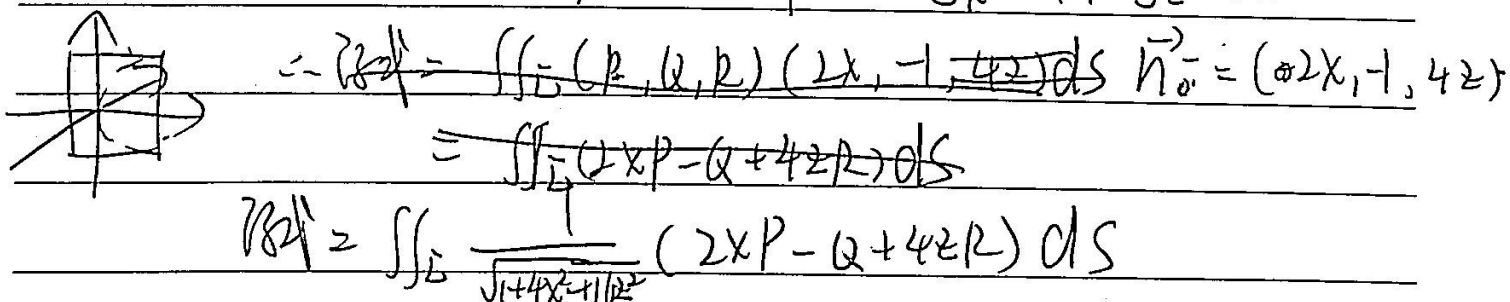 ∴ 原式 = ∬_Σ (P, Q, R) (2x, -1, 4z) dS n⃗₀ = (2x, -1, 4z)
= ∬_Σ (2xP - Q + 4zR) dS
原式 = ∬_Σ 1/√(1+4x²+16z²) (2xP - Q + 4zR) dS